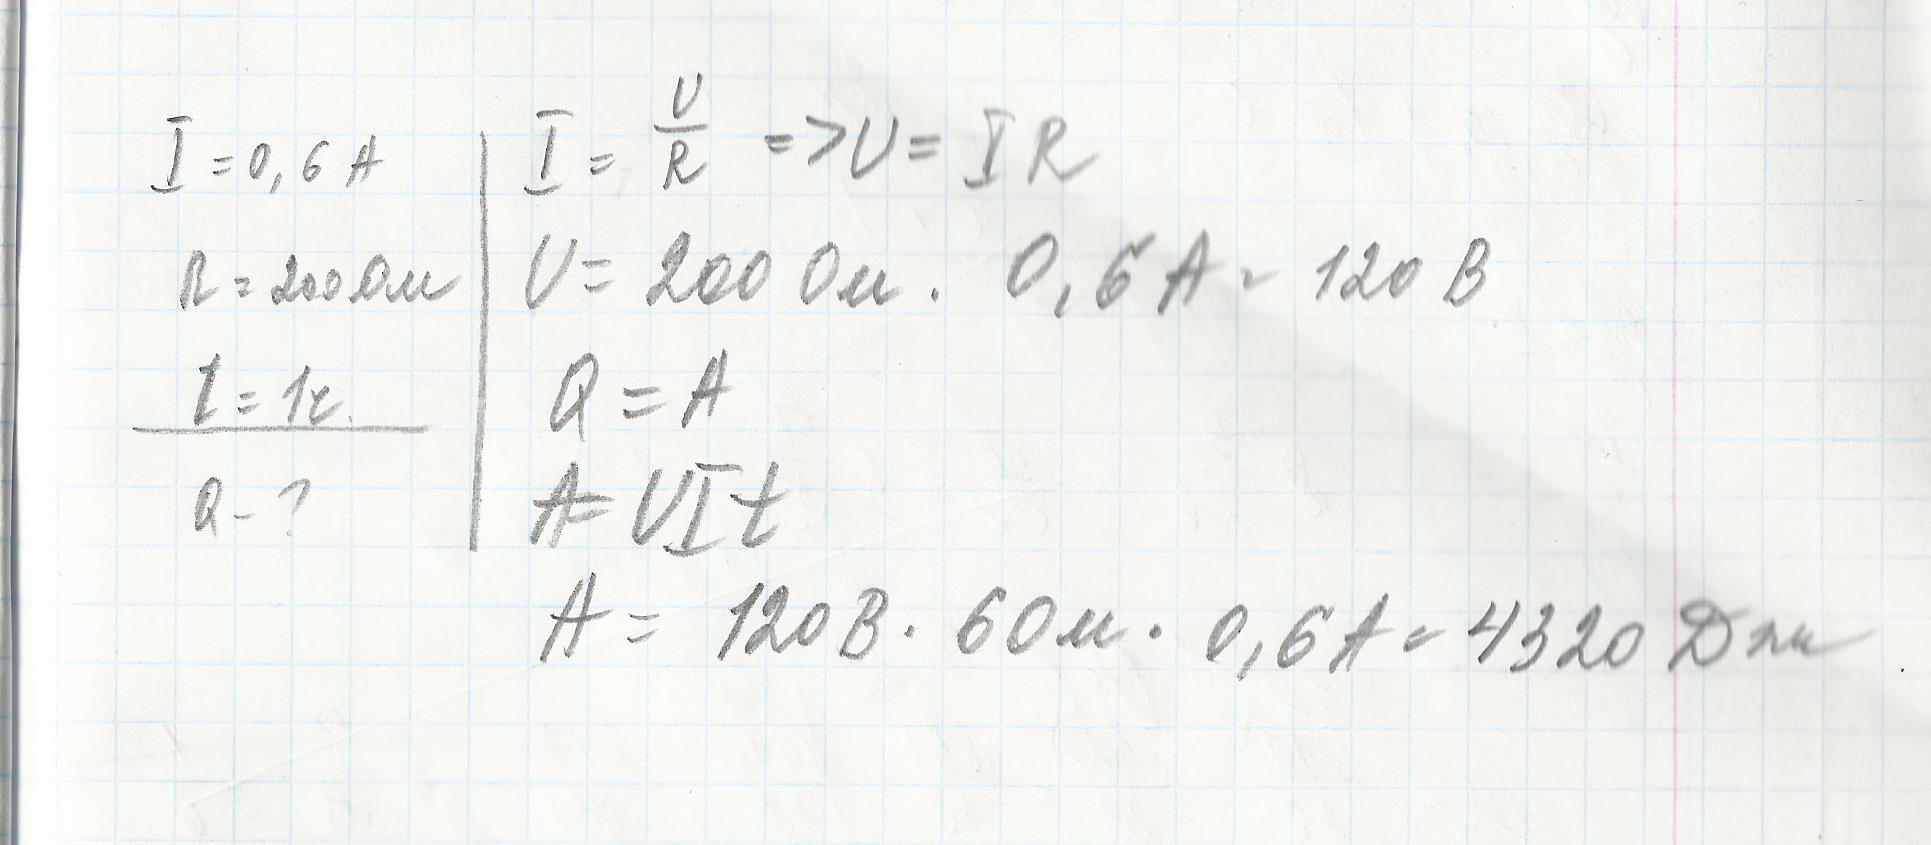 I = 0,6 А
R = 200 Ом
t = 1ч.
Q - ?
I = U/R => U = I R
U = 200 Ом · 0,6 А = 120 В
Q = A
A = UIt
A = 120 В · 60 м · 0,6 А = 4320 Дж